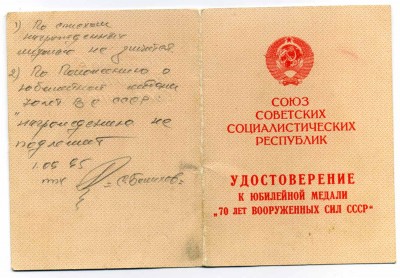 1) По спискам
награжденных
медалью не значится
2) По Положению о
юбилейной медали
70 лет В С СССР
награждению не
подлежит
СОЮЗ
СОВЕТСКИХ
СОЦИАЛИСТИЧЕСКИХ
РЕСПУБЛИК
УДОСТОВЕРЕНИЕ
К ЮБИЛЕЙНОЙ МЕДАЛИ
"70 ЛЕТ ВООРУЖЕННЫХ СИЛ СССР"